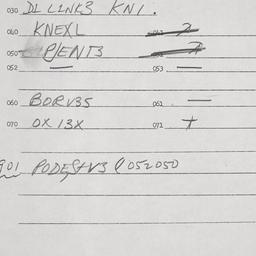 030 DL LINKS KN1.
040 KNEXL 2
050 PJENTS 2
052 — 053 —
060 BORV35 061 —
070 OX 13X 071 +
901 PODEST V3 052050